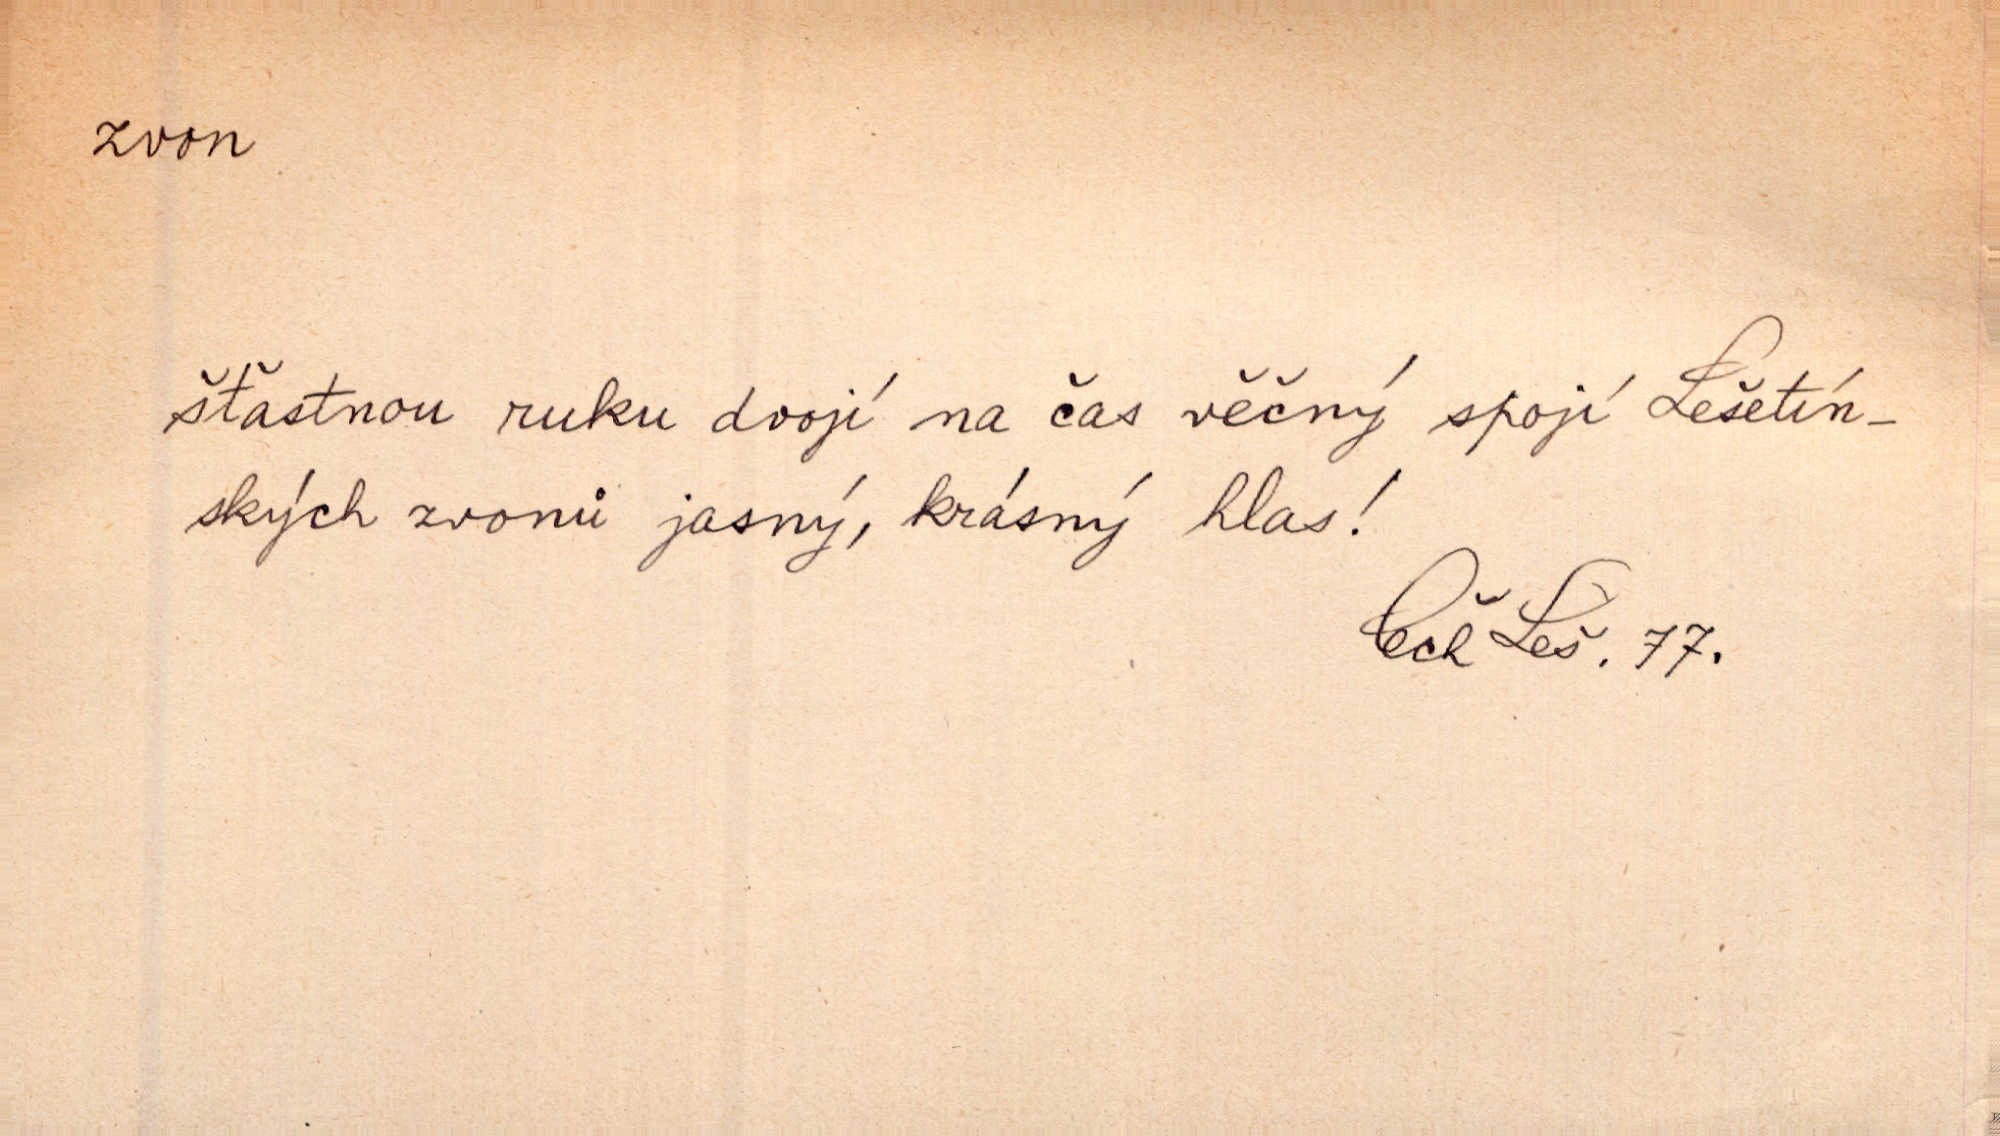 zvon
šťastnou ruku dvojí na čas věčný spojí Lešetín-
ských zvonů jasný, krásný hlas!
Čech Leš. 77.